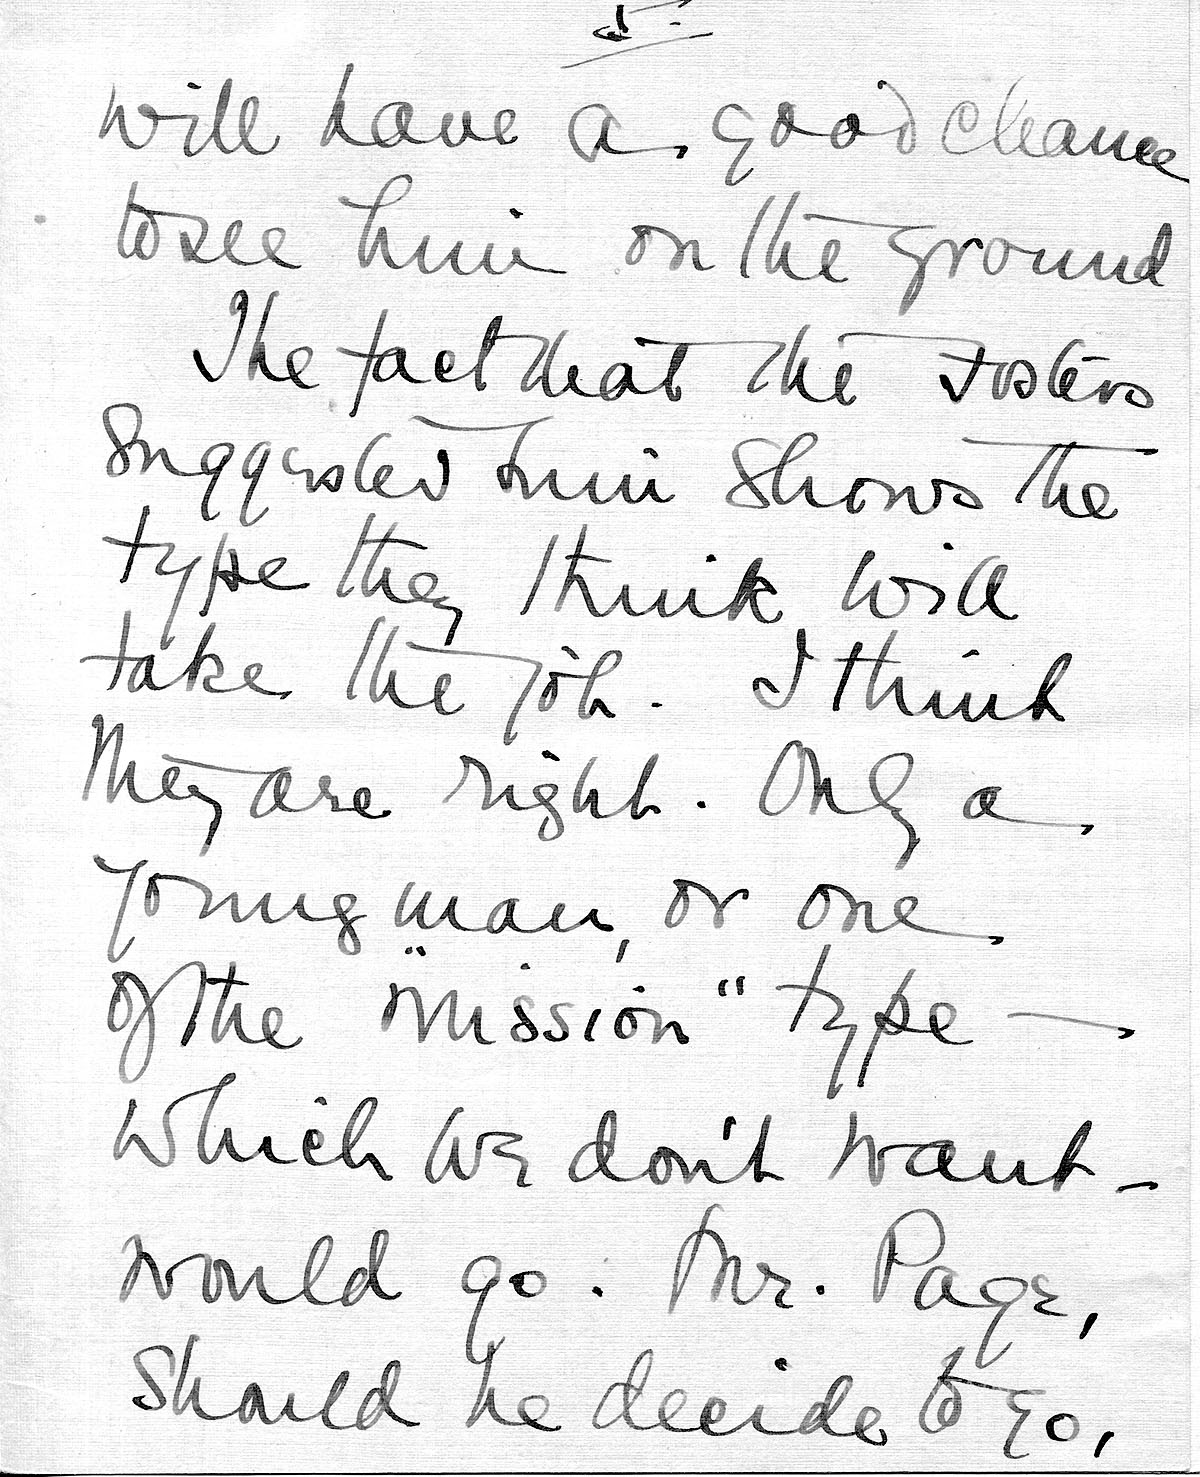 will have a good chance
to see him on the ground
The fact that the Fosters
suggested him shows the
type they think will
take the job. I think
they are right. Only a
young man, or one
of the "mission" type —
which we don't want —
would go. Mr. Page,
should he decide to go,